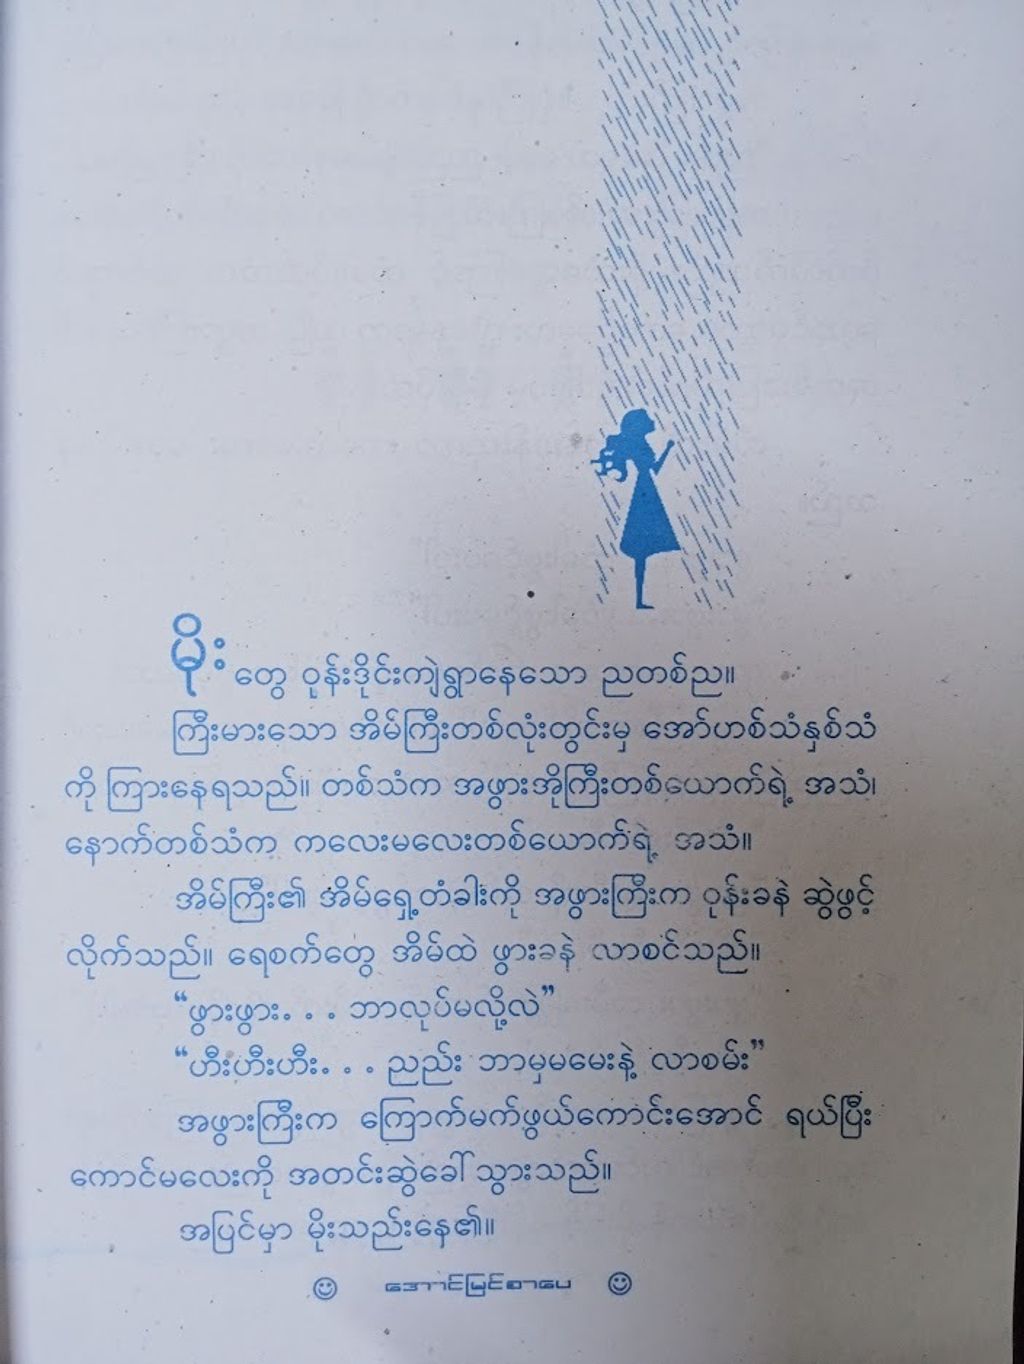 မိုးတွေ ဝုန်းဒိုင်းကျဲရွာနေသော ညတစ်ည။
ကြီးမားသော အိမ်ကြီးတစ်လုံးတွင်းမှ အော်ဟစ်သံနှစ်သံ
ကို ကြားနေရသည်။ တစ်သံက အဖွားအိုကြီးတစ်ယောက်ရဲ့ အသံ၊
နောက်တစ်သံက ကလေးမလေးတစ်ယောက်ရဲ့ အသံ။
အိမ်ကြီး၏ အိမ်ရှေ့တံခါးကို အဖွားကြီးက ဝုန်းခနဲ ဆွဲဖွင့်
လိုက်သည်။ ရေစက်တွေ အိမ်ထဲ ဖွားခနဲ လာစင်သည်။
“ဖွားဖွား. . . ဘာလုပ်မလို့လဲ”
“ဟီးဟီးဟီး. . . ညည်း ဘာမှမမေးနဲ့ လာစမ်း”
အဖွားကြီးက ကြောက်မက်ဖွယ်ကောင်းအောင် ရယ်ပြီး
ကောင်မလေးကို အတင်းဆွဲခေါ်သွားသည်။
အပြင်မှာ မိုးသည်းနေ၏။
အောင်မြင်စာပေ